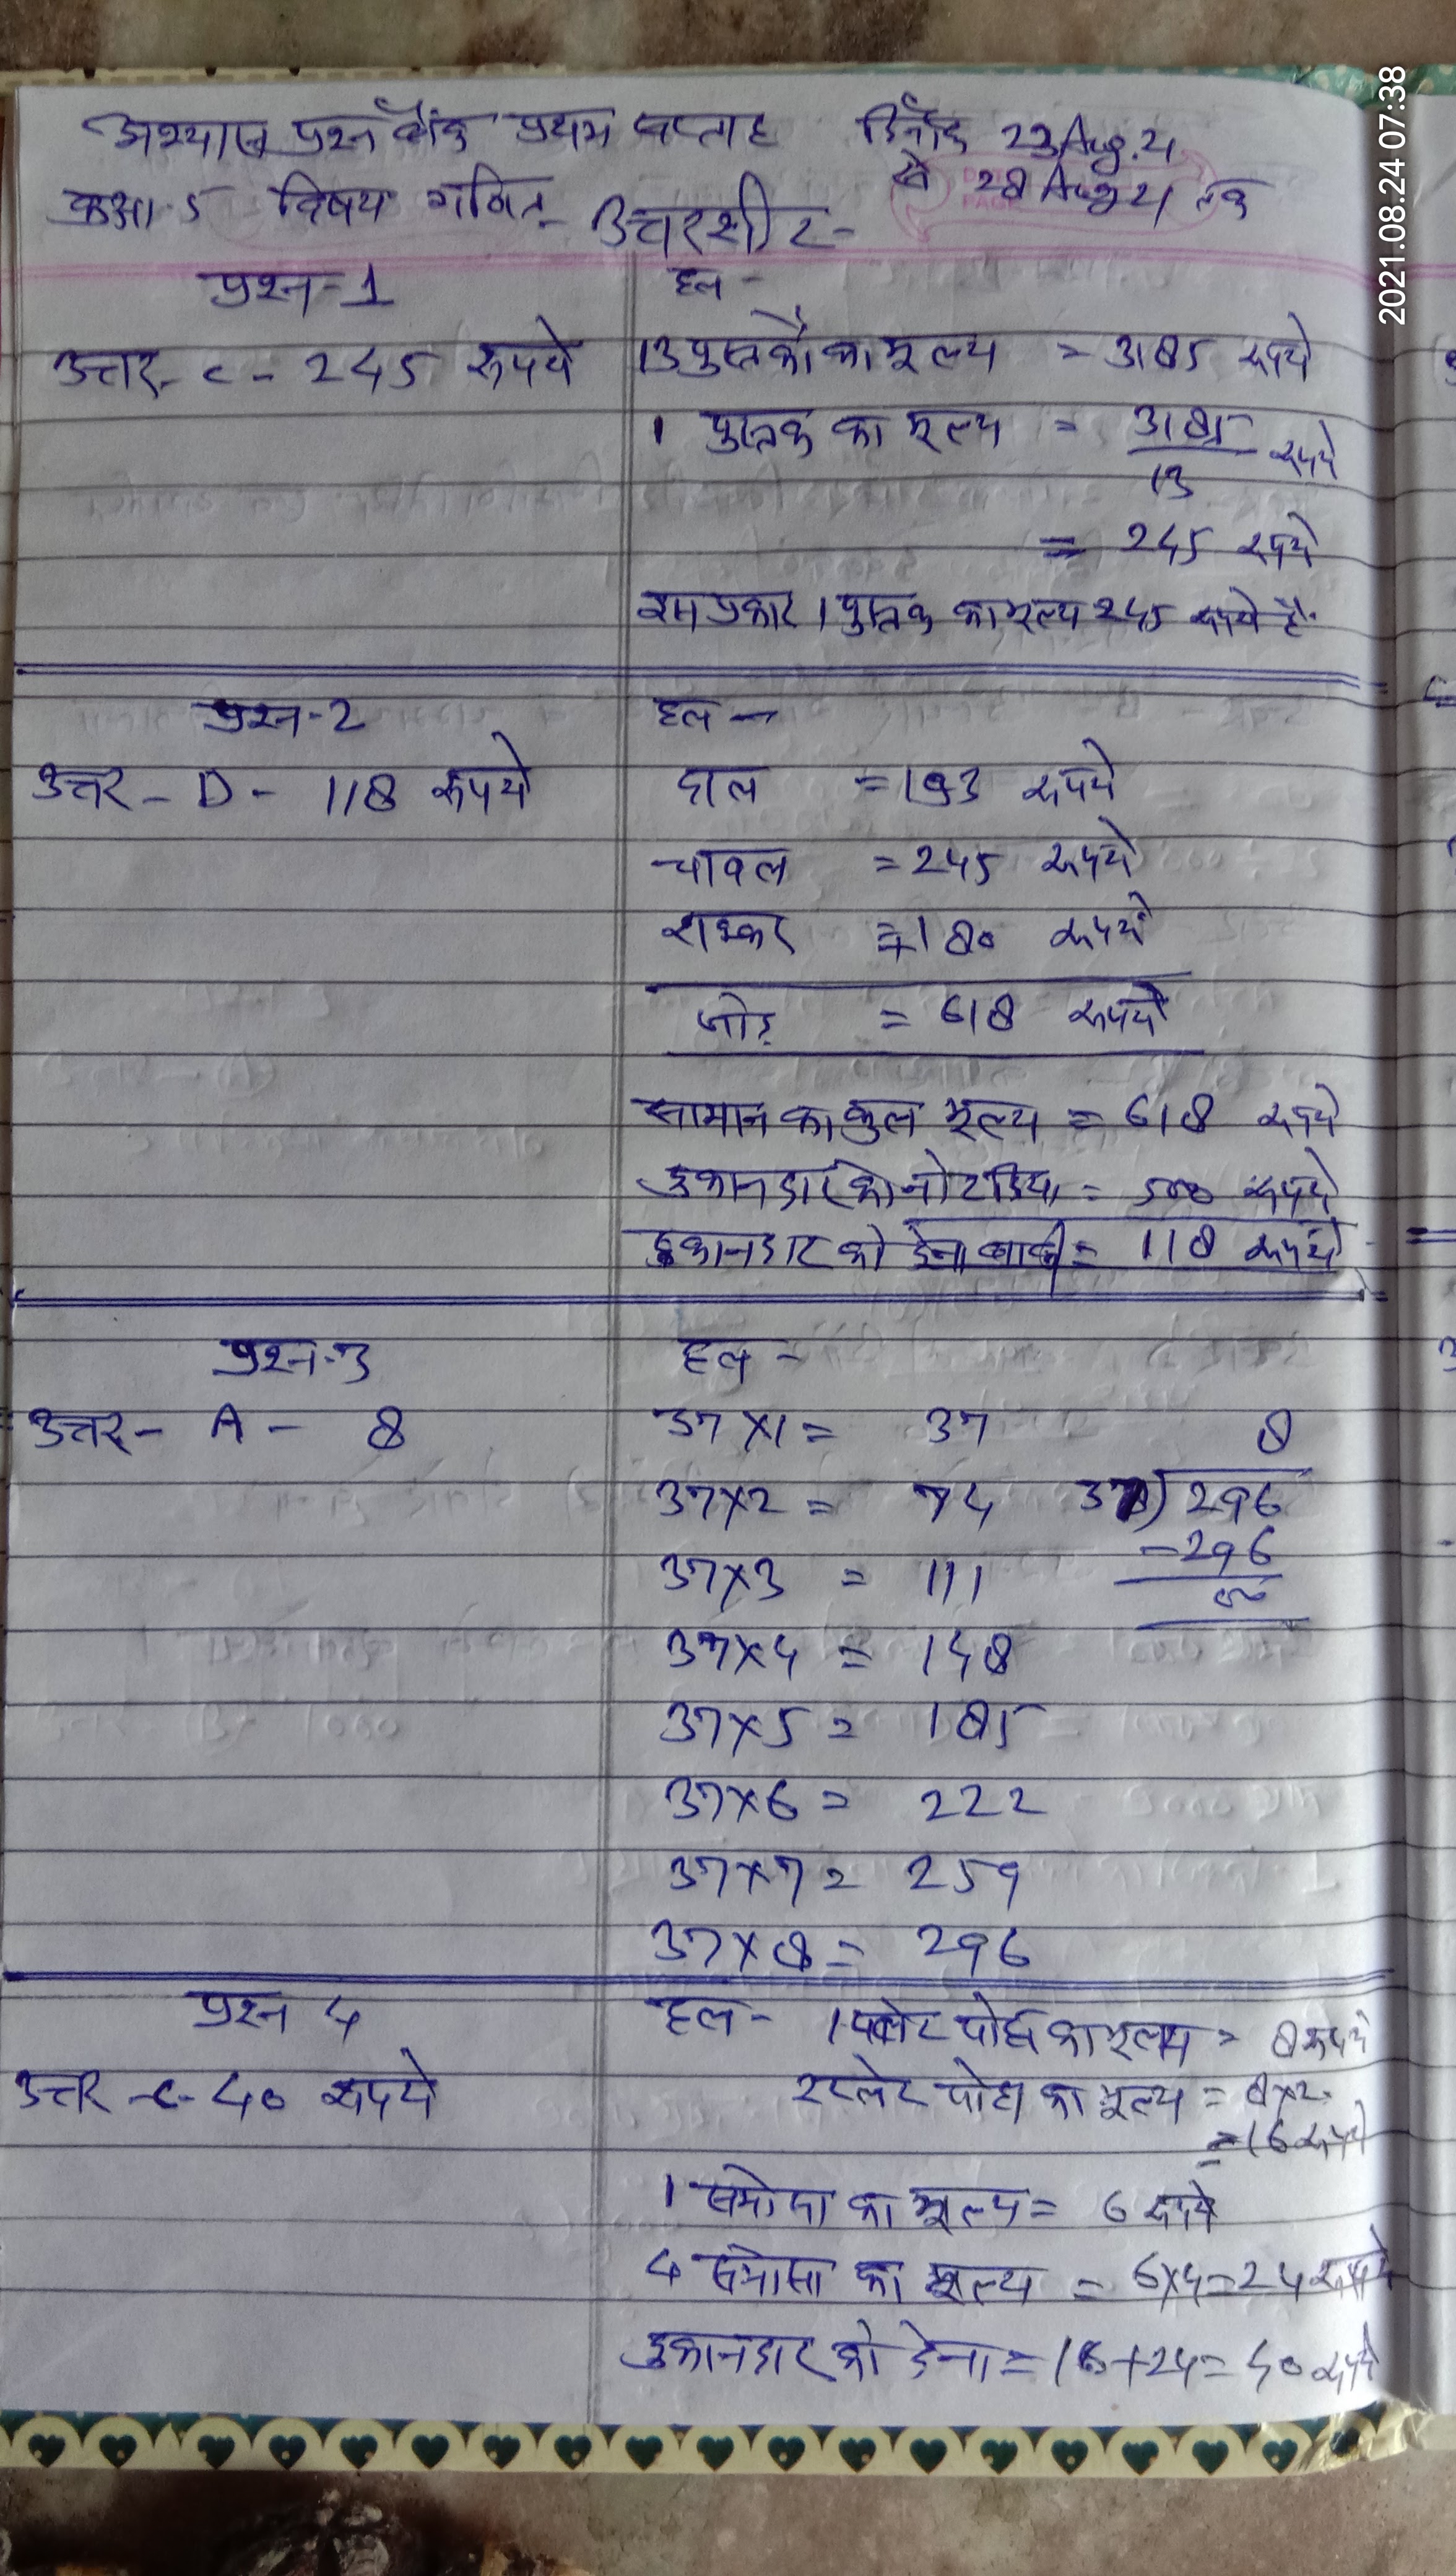 अभ्यास प्रश्न बैंक प्रथम सप्ताह दिनाँक 23 Aug. 21
से 28 Aug 21 तक
कक्षा-5 विषय गणित - उत्तरशीट -
प्रश्न-1
उत्तर - C - 245 रूपये
हल -
13 पुस्तकों का मूल्य = 3185 रूपये
1 पुस्तक का मूल्य = 3185/13 रूपये
= 245 रूपये
इस प्रकार 1 पुस्तक का मूल्य 245 रूपये है.
प्रश्न-2
उत्तर - D - 118 रूपये
हल -
दाल = 193 रूपये
चावल = 245 रूपये
शक्कर = +180 रूपये
जोड़ = 618 रूपये
सामान का कुल मूल्य = 618 रूपये
दुकानदार को नोट दिया = 500 रूपये
दुकानदार को देना बाकी = 118 रूपये
प्रश्न-3
उत्तर - A - 8
हल -
37×1 = 37
37×2 = 74
37×3 = 111
37×4 = 148
37×5 = 185
37×6 = 222
37×7 = 259
37×8 = 296
8
37) 296
-296
00
प्रश्न 4
उत्तर - C - 40 रूपये
हल - 1 प्लेट पोहा का मूल्य = 8 रूपये
2 प्लेट पोहा का मूल्य = 8×2
= 16 रूपये
1 समोसा का मूल्य = 6 रूपये
4 समोसा का मूल्य = 6×4 = 24 रूपये
दुकानदार को देना = 16+24 = 40 रूपये
2021.08.24 07:38